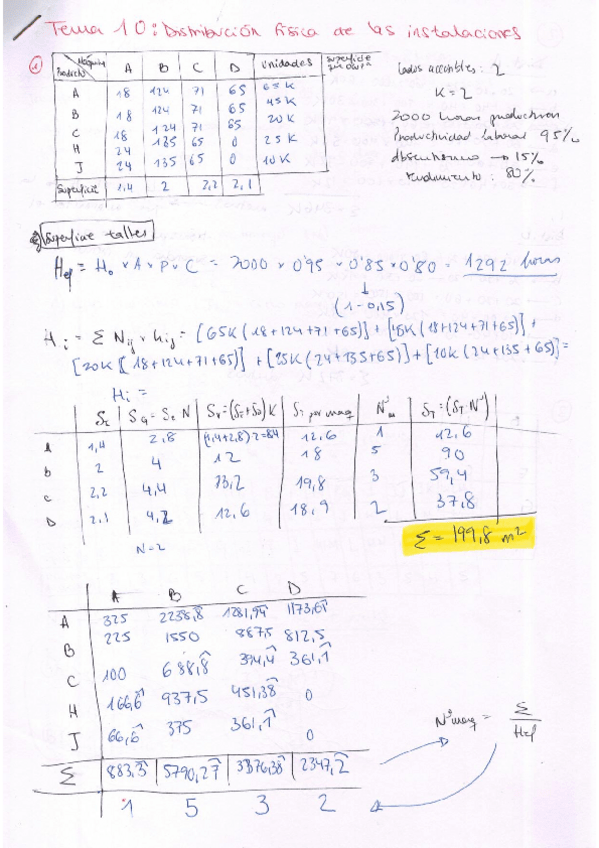 Tema 10: Distribución física de las instalaciones
① Máquina Producto A B C D Unidades
A 18 124 71 65 65K
B 18 124 71 65 45K
C 18 124 71 65 20K
H 24 135 65 0 25K
J 24 135 65 0 10K
Superficie 1,4 2 2,2 2,1
Lados accesibles: 2
K = 2
2000 horas productivas
Productividad laboral 95%
absentismo → 15%
rendimiento: 80%
Superficie taller
Hef = Ho × A × P × C = 2000 × 0'95 × 0'85 × 0'80 = 1292 horas
↓
(1-0,15)
Hi = Σ Nij × hij = [65K (18+124+71+65)] + [45K (18+124+71+65)] +
[20K [18+124+71+65)] + [25K (24+135+65)] + [10K (24+135+65)] =
Hi =
SG = SE N SV = (SE+SG) K ST por maq ST = (ST·Nº)
A 1,4 2,8 (1,4+2,8) 2=8,4 12,6 1 12,6
B 2 4 12 18 5 90
C 2,2 4,4 13,2 19,8 3 59,4
D 2,1 4,2 12,6 18,9 2 37,8
N=2
Σ = 199,8 m²
A B C D
A 325 2238,8 1281,94 1173,61
B 225 1550 887,5 812,5
C 100 688,8 394,4 361,1
H 166,6 937,5 451,38 0
J 66,6 375 361,1 0
Nº maq = Σ / Hef
Σ 883,3 5790,27 3376,38 2347,2
1 5 3 2